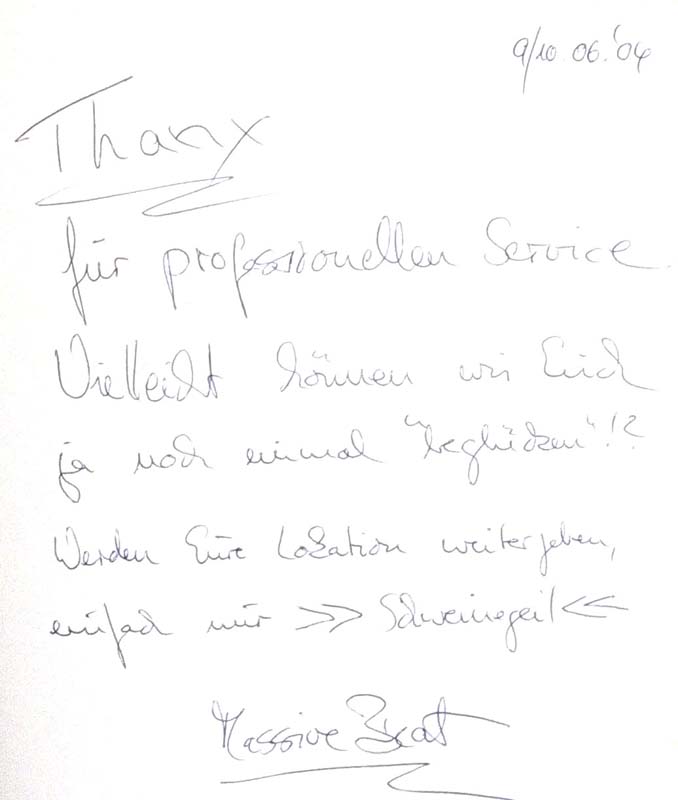 9/10.06.'04
Thanx
für professionellen Service
Vielleicht können wir Euch
ja noch einmal "beglücken"!?
Werden Eure Lokation weitergeben,
einfach nur >> Schweinegeil <<
Massive Beat